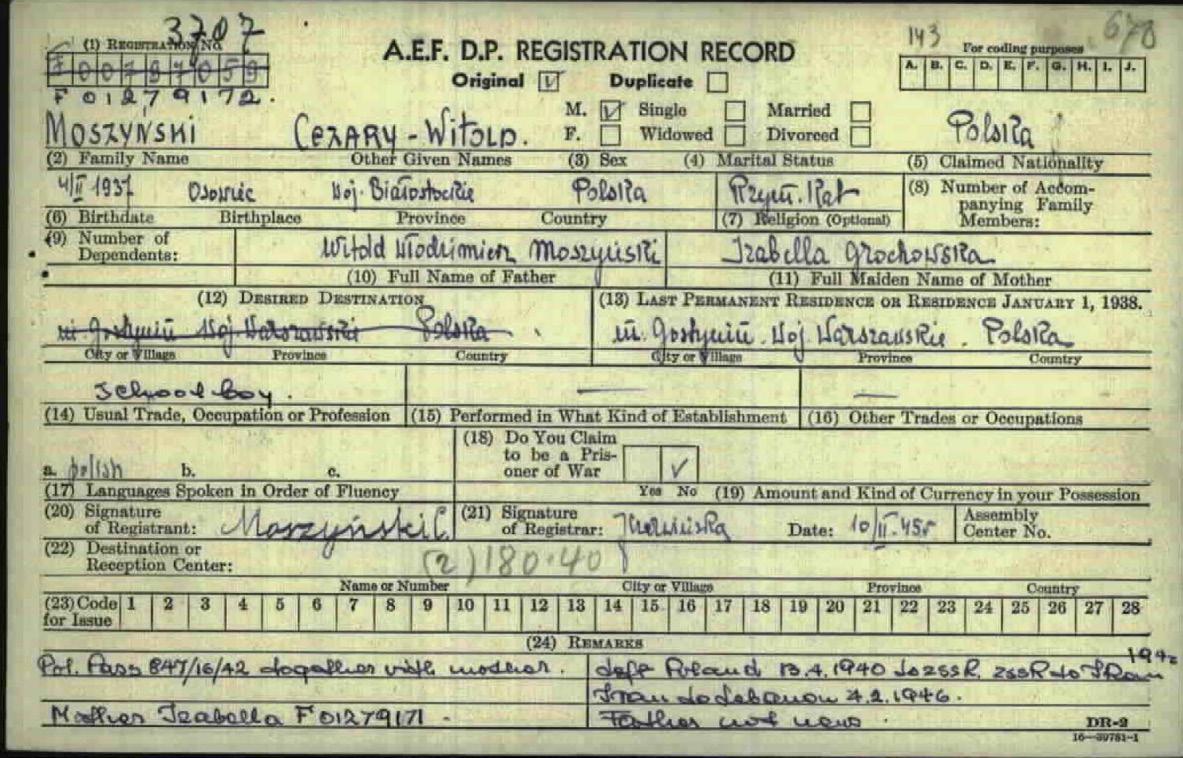 3707
(1) REGISTRATION NO.
A.E.F. D.P. REGISTRATION RECORD
143
For coding purposes
670
Original ☑ Duplicate ☐
A. B. C. D. E. F. G. H. I. J.
F 01279172.
M. ☑ Single ☐ Married ☐
F. ☐ Widowed ☐ Divorced ☐
MOSZYŃSKI CEZARY - WITOLD. Polska
(2) Family Name Other Given Names (3) Sex (4) Marital Status (5) Claimed Nationality
4/II 1937 Osowiec Woj. Białostockie Polska Rzym. Kat
(8) Number of Accompanying Family Members:
(6) Birthdate Birthplace Province Country (7) Religion (Optional)
(9) Number of Dependents: Witold Włodzimierz Moszyński Izabella Grochowska
(10) Full Name of Father (11) Full Maiden Name of Mother
(12) DESIRED DESTINATION (13) LAST PERMANENT RESIDENCE OR RESIDENCE JANUARY 1, 1938.
m. Gostynin Woj. Warszawskie Polska m. Gostynin. Woj. Warszawskie. Polska
City or Village Province Country City or Village Province Country
School boy. — —
(14) Usual Trade, Occupation or Profession (15) Performed in What Kind of Establishment (16) Other Trades or Occupations
(18) Do You Claim to be a Prisoner of War
a. polish b. c.
(17) Languages Spoken in Order of Fluency Yes No (19) Amount and Kind of Currency in your Possession
(20) Signature of Registrant: Moszyński C. (21) Signature of Registrar: Date: 10/II.45 Assembly Center No.
(22) Destination or Reception Center: (2) 180.40
Name or Number City or Village Province Country
(23) Code for Issue 1 2 3 4 5 6 7 8 9 10 11 12 13 14 15 16 17 18 19 20 21 22 23 24 25 26 27 28
(24) REMARKS
Pol. Pass 847/16/42 dogather with mother. left Poland 13.4.1940 to ZSSR. ZSSR to Iran 1942
Iran to Lebanon 4.2.1946.
Mother Izabella F 01279171. Father not news.
DR-2
16—39781-1